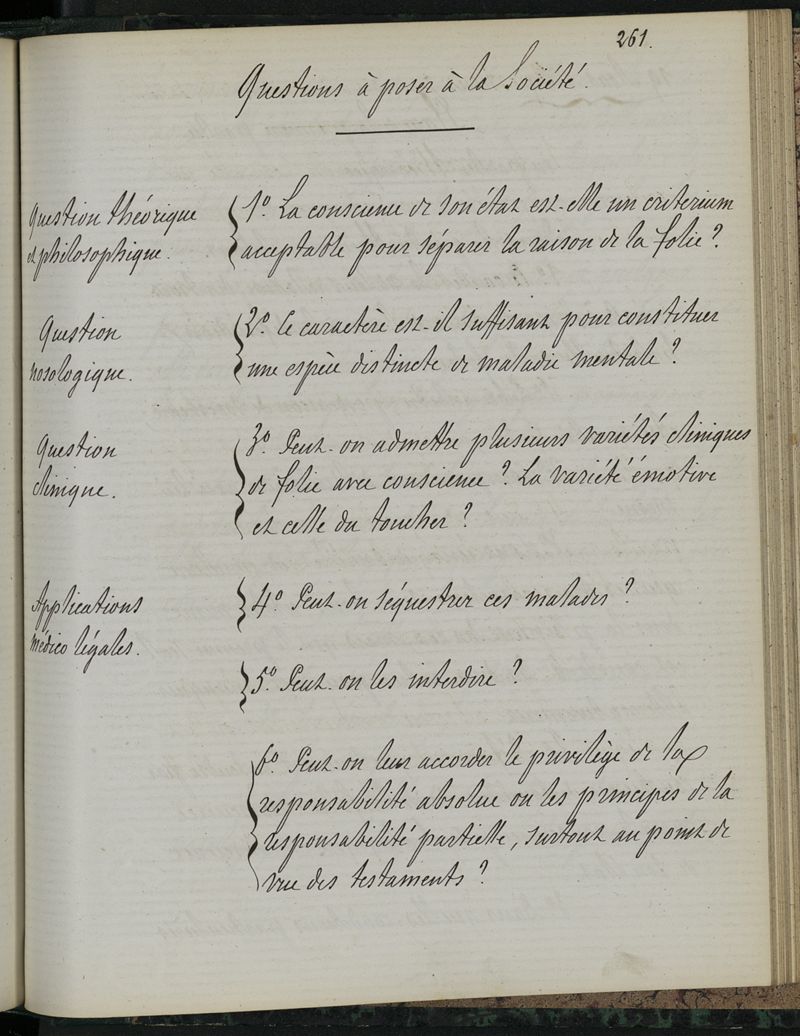 261.
Questions à poser à la Société.
Question théorique
et philosophique.
1º. La conscience de son état est-elle un criterium
acceptable pour séparer la raison de la folie ?
Question
nosologique.
2º. Ce caractère est-il suffisant pour constituer
une espèce distincte de maladie mentale ?
Question
clinique.
3º. Peut-on admettre plusieurs variétés cliniques
de folie avec conscience ? La variété émotive
et celle du toucher ?
Applications
médico légales.
4º. Peut-on séquestrer ces malades ?
5º. Peut-on les interdire ?
6º. Peut-on leur accorder le privilège de la
responsabilité absolue ou les principes de la
responsabilité partielle, surtout au point de
vue des testaments ?